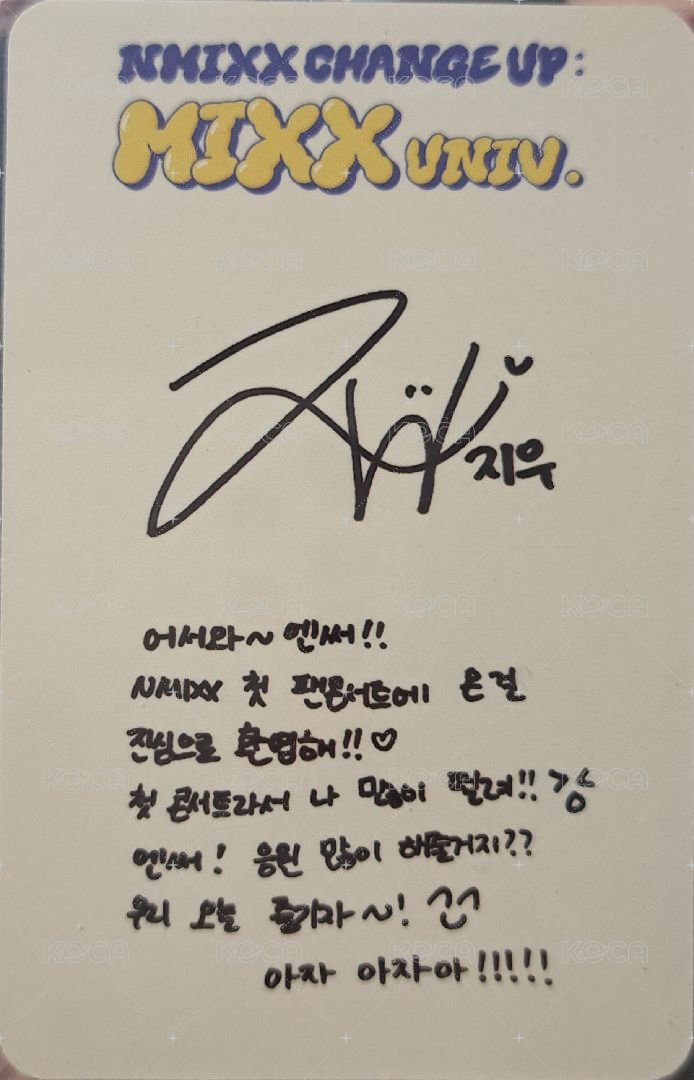 NMIXX CHANGE UP:
MIXX UNIV.
지우
어서와~ 엔써!!
NMIXX 첫 팬콘서트에 온걸
진심으로 환영해!! ♡
첫 콘서트라서 나 많이 떨려!!
엔써! 응원 많이 해줄거지??
우리 오늘 즐기자~! ^^
아자 아자아!!!!!
KOCA